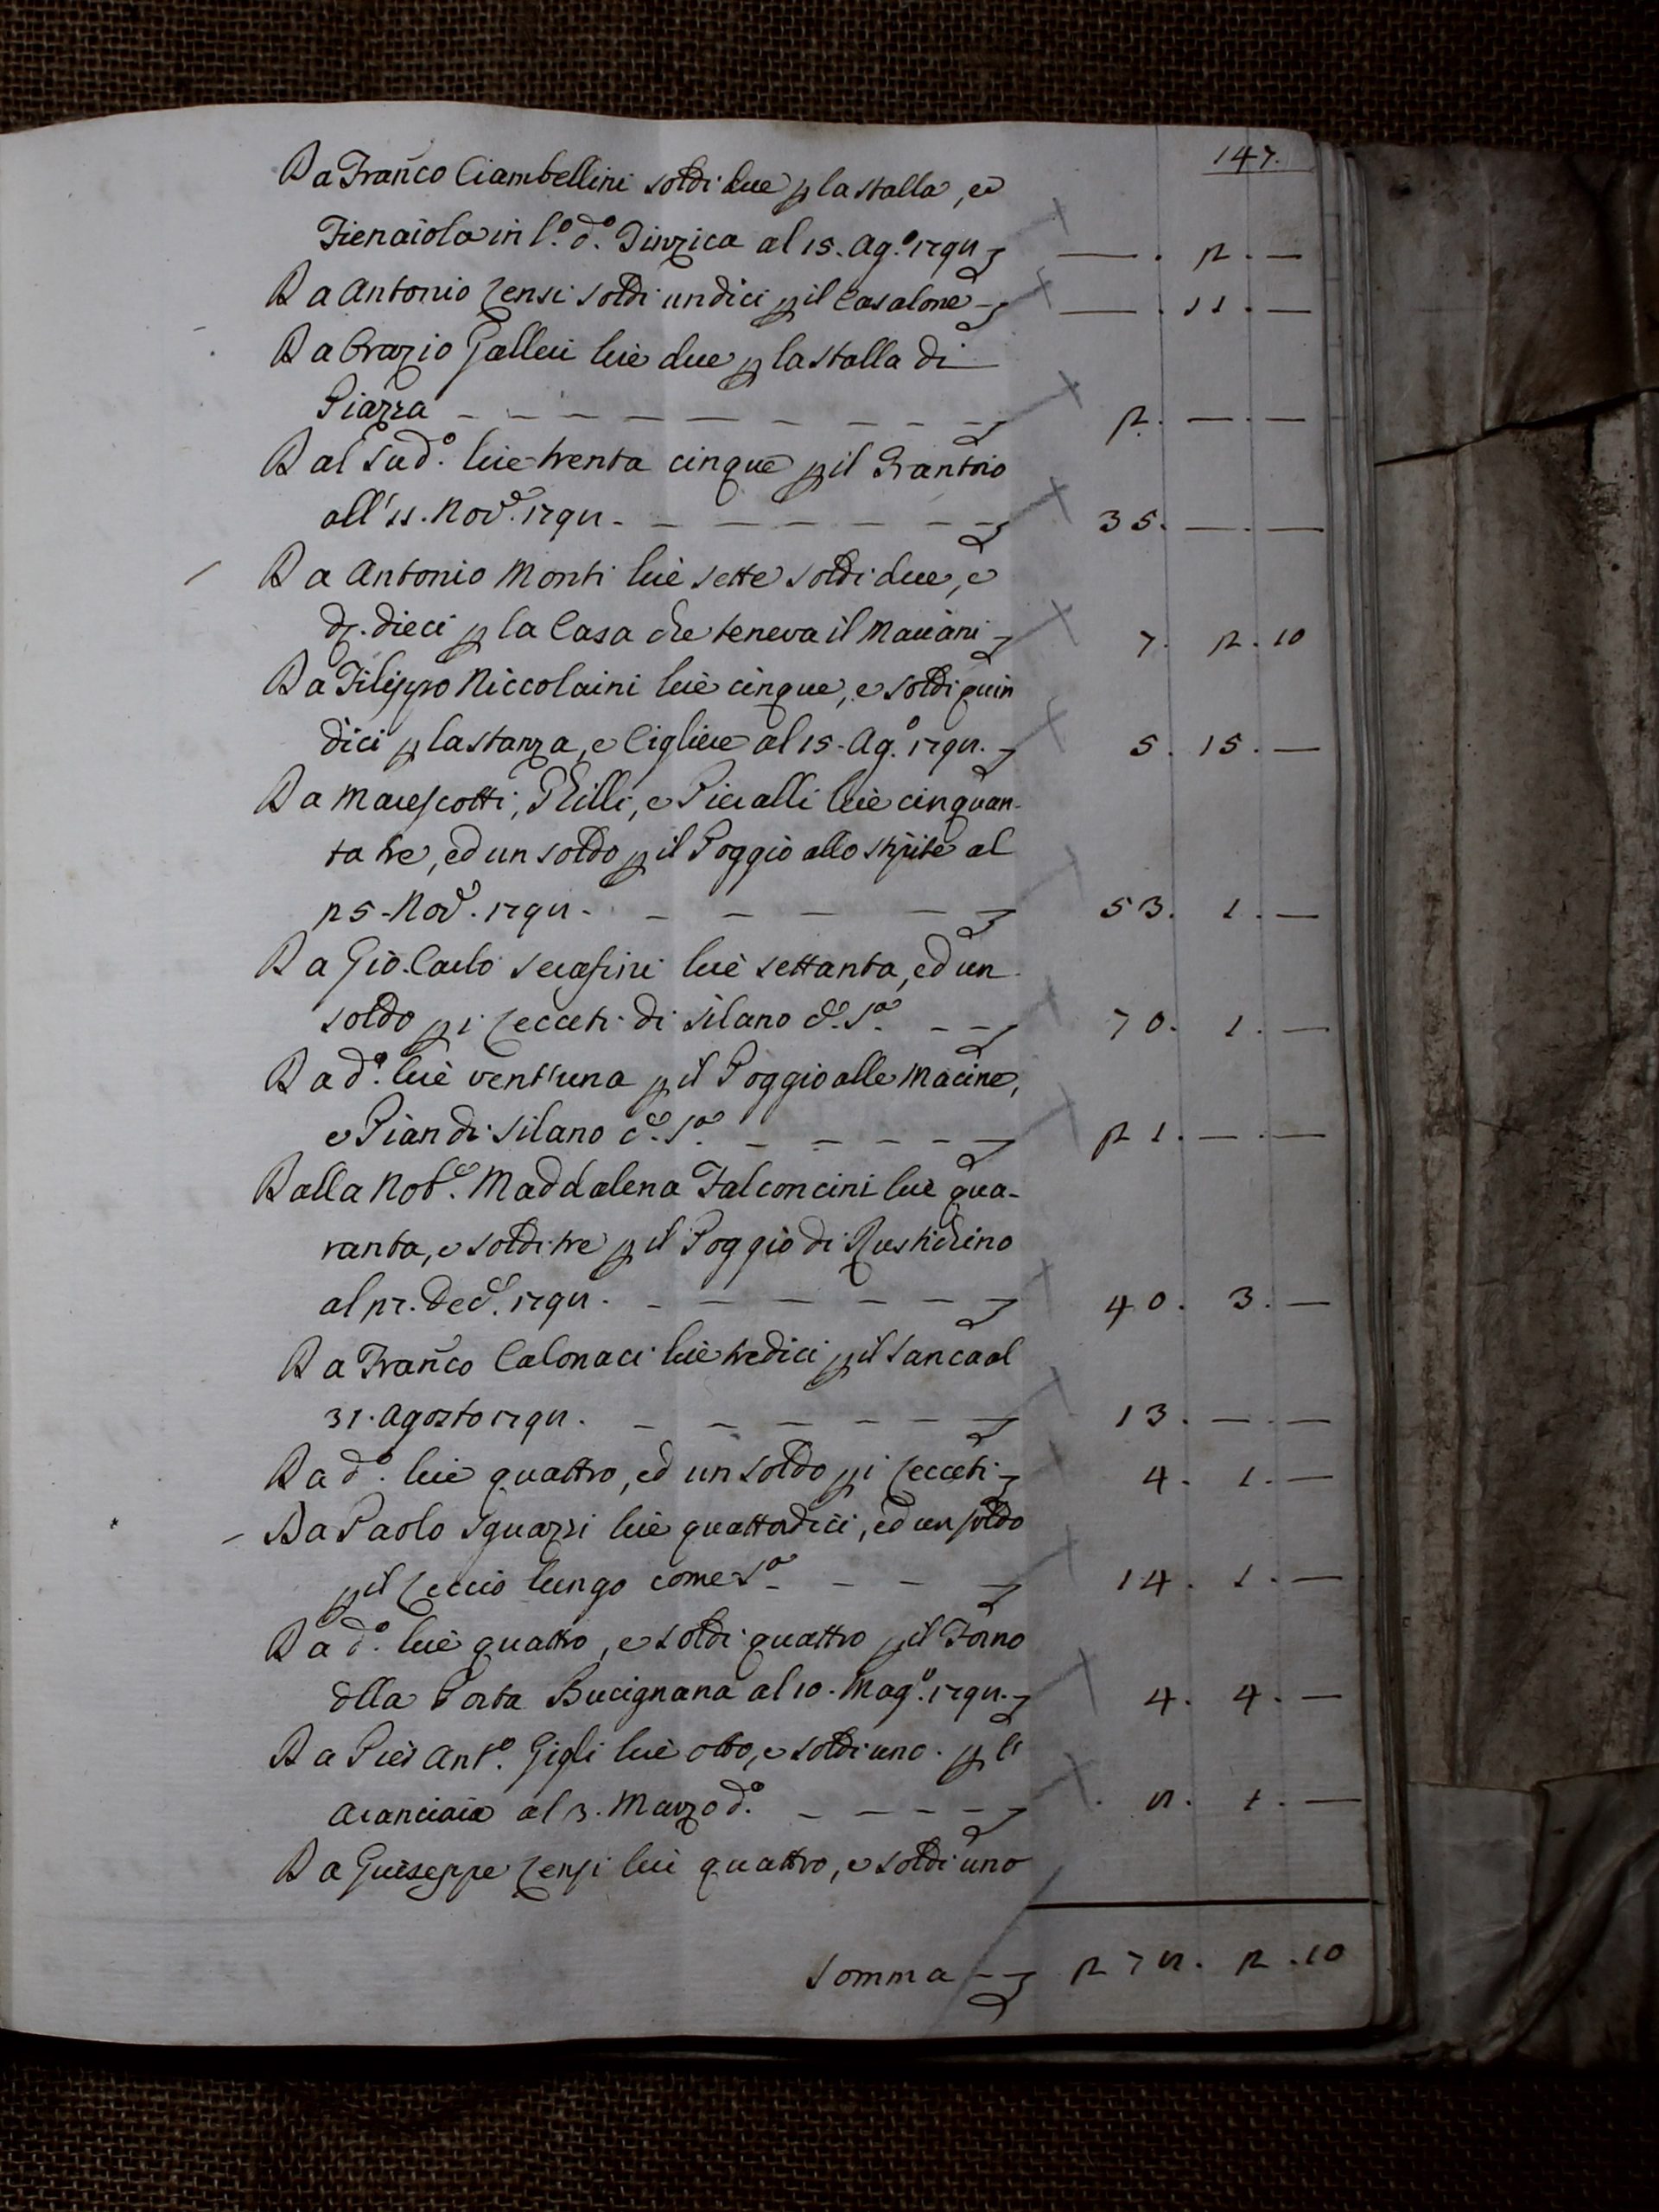 147.
Da Franco Ciambellini soldi due p la stalla, e
Fienaiola in l.o d.o Dinzica al 15. Ag.o 1798 — . 2 . —
Da Antonio Censi soldi undici p il Casalone — . 11 . —
Da Orazio Galleri lire due p la stalla di
Piazza 2. — . —
Dal Sud.o lire trenta cinque p il Frantoio
all' 11. Nov.e 1798 35. — . —
Da Antonio Monti lire sette soldi due, e
dr. dieci p la Casa che teneva il Mariani 7. 2 . 10
Da Filippo Niccolaini lire cinque, e soldi quin
dici p la stanza, e Cigliere al 15. Ag.o 1798. 5 . 15 . —
Da Marescotti, Pilli, e Pieralli lire cinquan-
ta tre, ed un soldo p il Poggio allo al
25. Nov.e 1798 53. 1 . —
Da Gio. Carlo Serafini lire settanta, ed un
soldo p i Cecceti di Silano c.e S.a 70. 1 . —
Da d.o lire vent'una p il Poggio alle Macine,
e Pian di Silano c.e S.a 21. — . —
Dalla Nob.e Maddalena Falconcini lire qua-
ranta, e soldi tre p il Poggio di Rustichino
al 2. Dec.e 1798. 40. 3. —
Da Franco Calonaci lire tredici p il Sanca al
31. Agosto 1798. 13. — . —
Da d.o lire quattro, ed un soldo p i Cecceti 4. 1. —
Da Paolo Sguazzi lire quattordici, ed un soldo
p il Ceccio lungo come S.a 14. 1. —
Da d.o lire quattro, e soldi quattro p il Forno
dlla Porta Bucignana al 10. Mag.o 1798. 4. 4. —
Da Pier Ant.o Gigli lire otto, e soldi uno. p l'
Aranciaia al 3. Marzo d.o 8. 1. —
Da Guiseppe Censi lire quattro, e soldi uno
Somma 278. 2 . 10